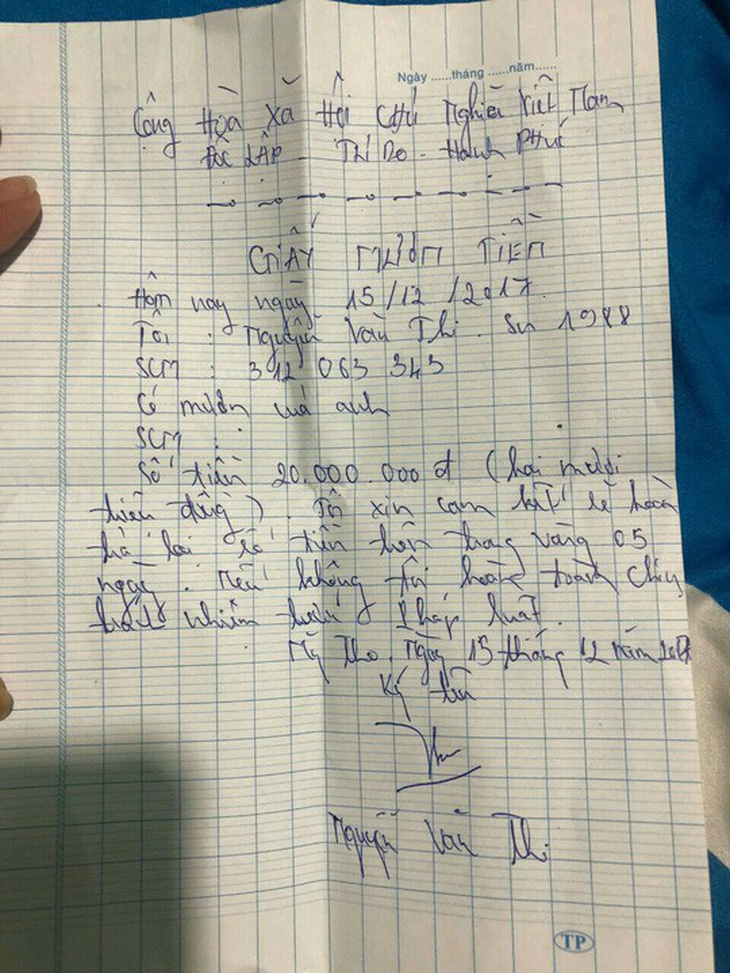 Ngày ......tháng ......năm......
Cộng Hòa Xã Hội Chủ Nghĩa Việt Nam
Độc Lập - Tự Do - Hạnh Phúc
GIẤY MƯỢN TIỀN
Hôm nay ngày 15/12/2017.
Tôi : Nguyễn Văn Thi. Sn 1988
SCM : 312 063 343
Có mượn của anh
SCM :
Số tiền 20.000.000 đ (hai mươi
triệu đồng). Tôi xin cam kết sẽ hoàn
trả lại số tiền trên trong vòng 05
ngày. Nếu không tôi hoàn toàn chịu
trách nhiệm trước Pháp luật.
Mỹ Tho. Ngày 15 tháng 12 năm 2017
Ký tên
Nguyễn Văn Thi
TP